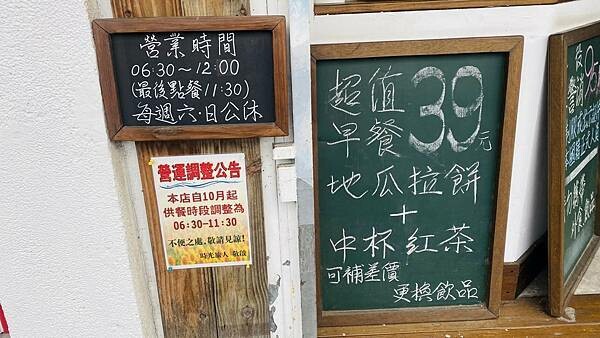 營業時間
06:30～12:00
(最後點餐11:30)
每週六.日公休
營運調整公告
本店自10月起
供餐時段調整為
06:30-11:30
不便之處,敬請見諒!
時光旅人 敬啟
超值
早餐
39元
地瓜拉餅
+
中杯紅茶
可補差價
更換飲品